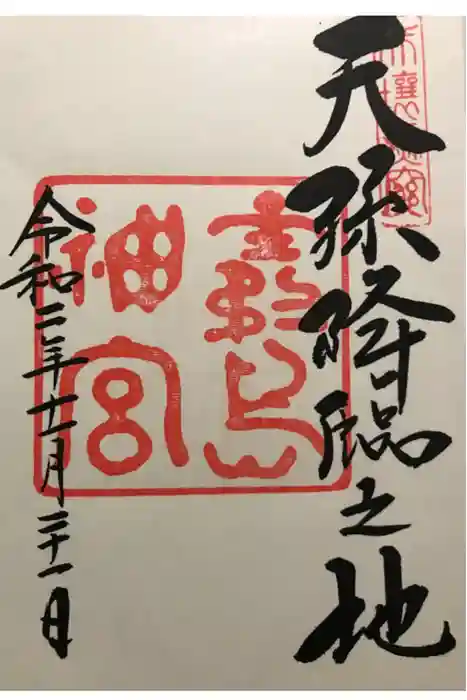 天壤無窮
天孫降臨之地
霧島
神宮
令和二年十一月二十一日